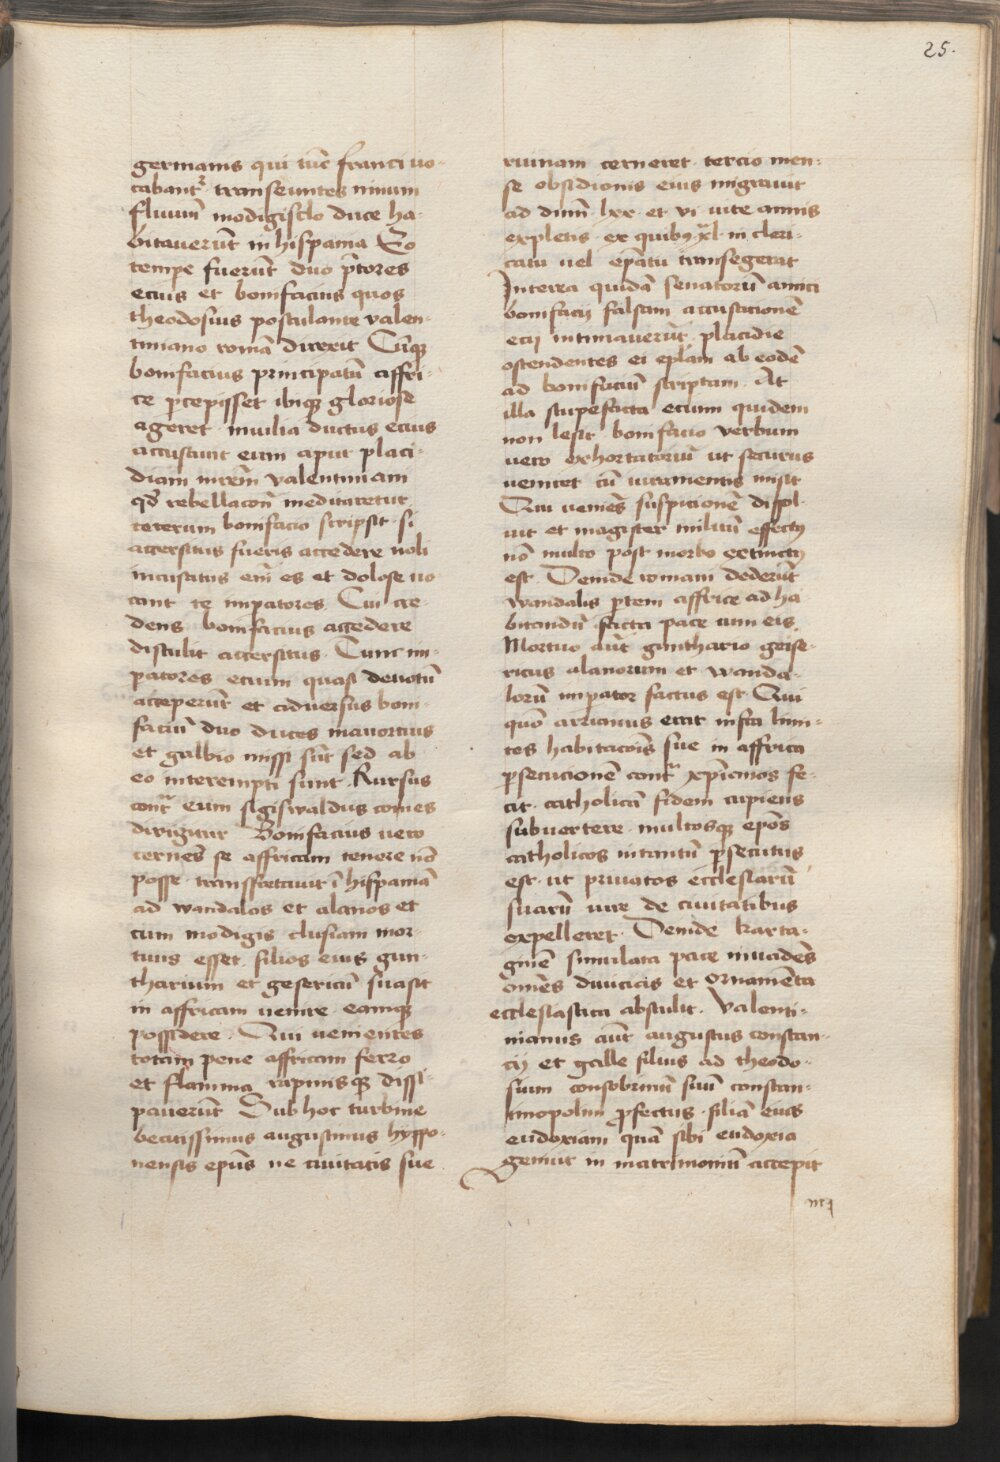 25.
germanis qui tūc franci uo-
cabant᷑ transeuntes rinum
fluuiū modigisclo duce ha-
bitauerūt in hispania Eo
tempe fuerūt duo p̄tores
ecius et bonifacius quos
theodosius postulante valen-
tiniano romā direxit Cūqꝫ
bonifacius principatū affri-
ce p̄cepisset ibiqꝫ gloriose
ageret inuidia ductus ecius
accusauit eum aput placi-
diam mrēm valentiniani
qd̛ rebellacōn̄ meditaretur
ceterum bonifacio scripsit si
accersitus fueris accedere noli
incusatus em̄ es et dolose uo
cant te impatores Cui cre-
dens bonifacius accedere
distulit accersitus Tunc im-
patores ecium quasi deuotū
acceperūt et aduersus boni-
faciū duo duces mauortius
et galbio missi sūt sed ab
eo interempti sunt Rursus
cont᷑ eum sigiswaldus comes
dirigitur Bonifacius uero
cernēs se affricam tenere nō
posse transfretauit ī hispaniā
ad wandalos et alanos et
cum modigis clusiam mor-
tuus esset filios eius gun-
tharium et gesericū suasit
in affricam uenire eamqꝫ
possidere Qui uenientes
totam pene affricam ferro
et flamma rapinisqꝫ dissi-
pauerūt Sub hoc turbine
beatissimus augustinus hyppo-
nensis epūs ne ciuitatis sue
ruinam cerneret tercio men-
se obsidionis eius migrauit
ad dnm̄ lxx et vi uite annis
expletis ex quibꝫ xl in cleri-
catu uel epātu transegerat
Interea quidā senatorū amici
bonifacij falsam accusacionē
ecij intimauerūt placidie
ostendentes ei epl̄am ab eodē
ad bonifaciū scriptam At
illa stupefacta ecium quidem
non lesit bonifacio verbum
uero exhortatoriū ut securus
ueniret cū iuramentis misit
Qui ueniēs suspicionē dissol-
uit et magister militū effectꝰ
nō multo post morbo extinctꝰ
est Deinde romani dederūt
wandalis p̄tem affrice ad ha
bitandū facta pace cum eis
Mortuo aūt gunthario geise-
ricus alanorum et wanda-
lorū impator factus est Qui
quō arrianus erat infra limi-
tes habitacōis sue in affrica
ꝑsecucionē cont᷑ xp̄ianos fe-
cit catholicā fidem cupiens
subuertere multosqꝫ epōs
catholicos intantū ꝑsecutus
est ut priuatos ecclesiarū
suarū iure de ciuitatibus
expelleret Deinde karta-
ginē simulata pace inuadēs
omēs diuicias et ornamēta
ecclesiastica abstulit Valenti-
nianus aūt augustus constan-
cij et galle filius ad theodo-
sium consobrinū suū constan-
tinopolim ꝓfectus filiā eius
eudoxiam quā sibi eudoxia
genuit in matrimoniū accepit